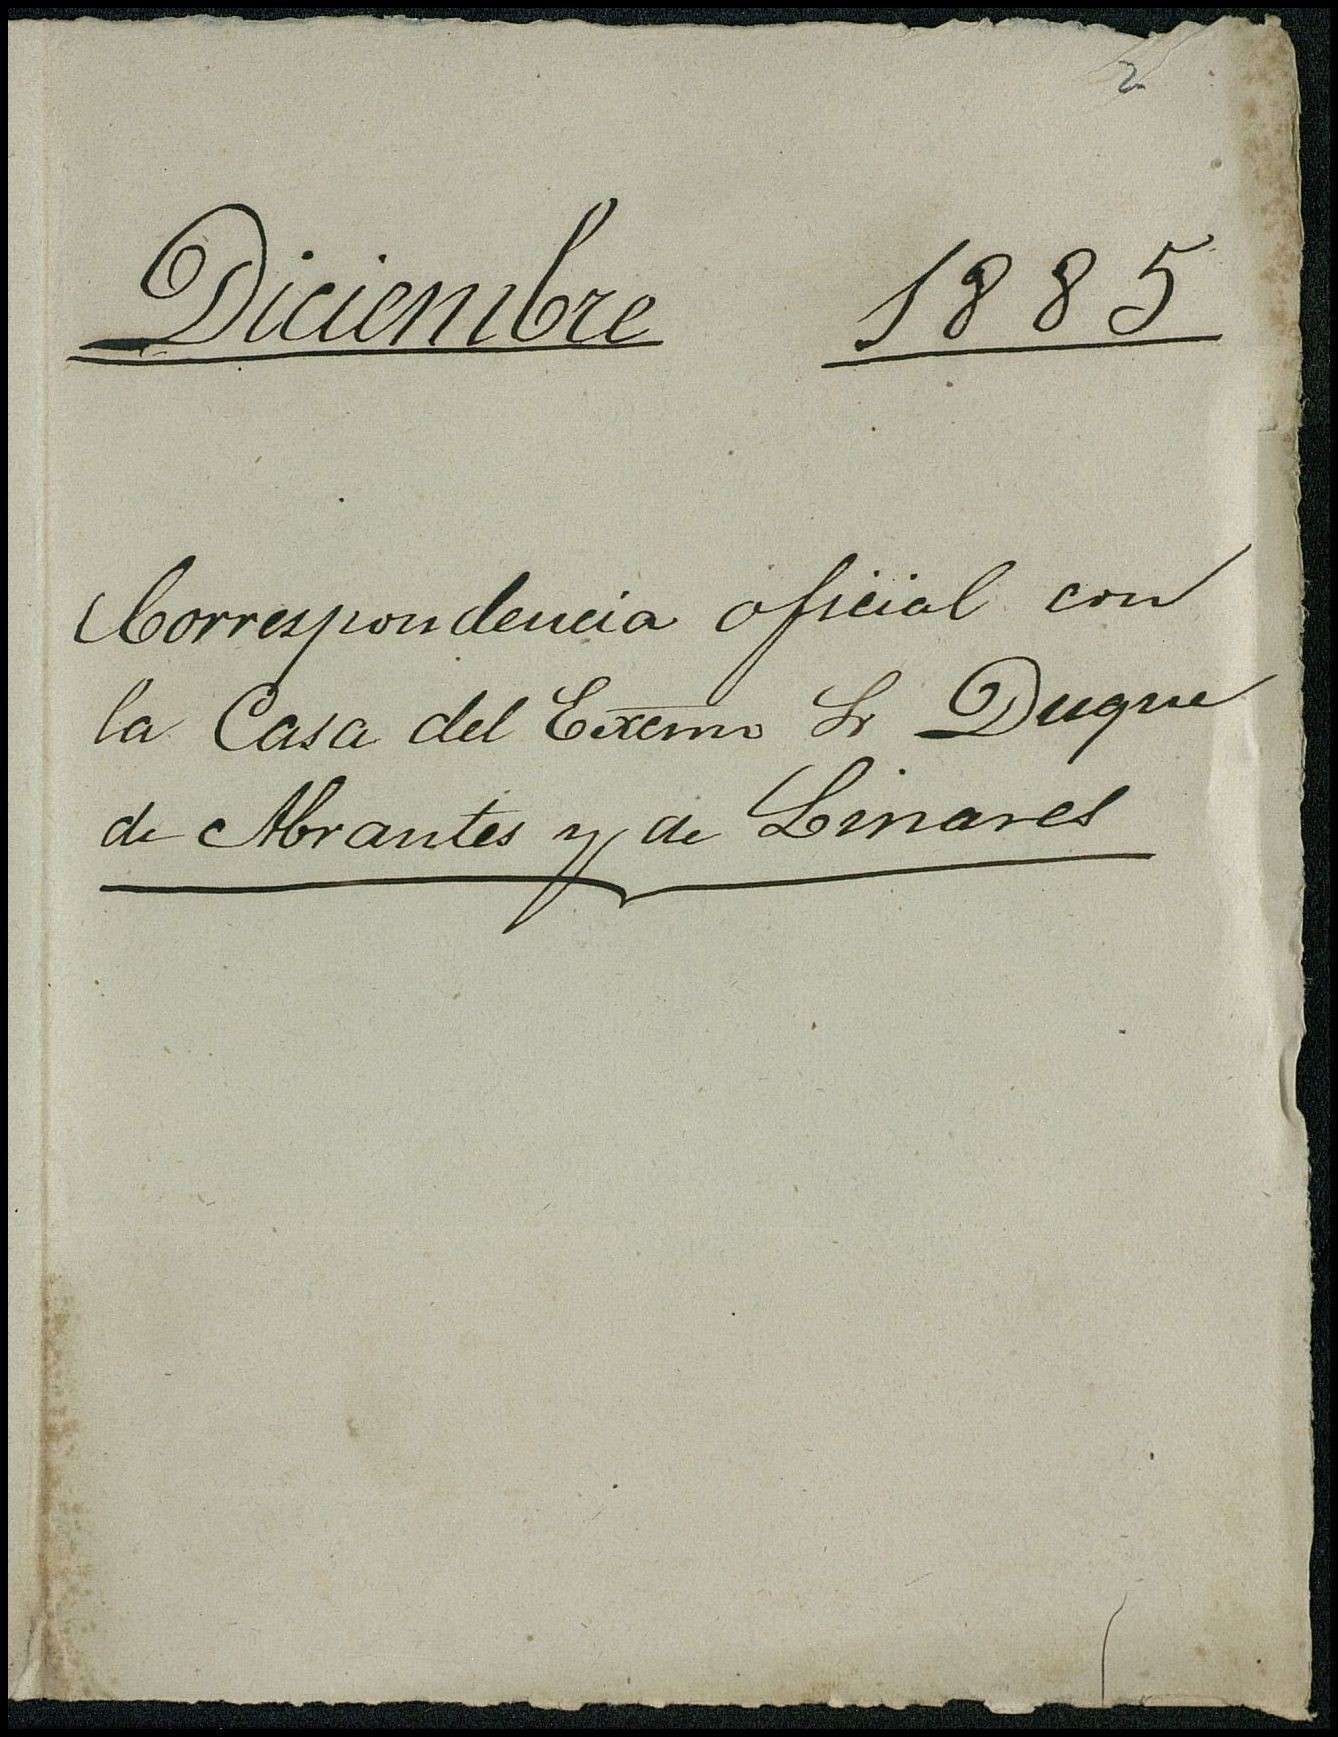 2
Diciembre 1885
Correspondencia oficial con
la Casa del Excmo Sr Duque
de Abrantes y de Linares